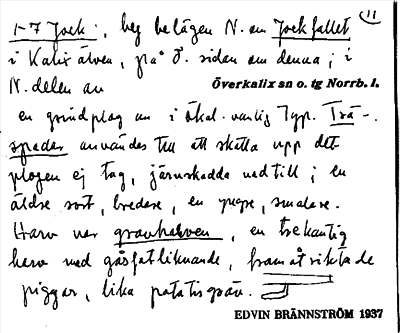 1-7 Jock: , beg belägen N. om Jockfallet
11
i Kalix älven, på Ö. sidan om denna; i
N. delen av
Överkalix sn o. tg Norrb. l.
en grindplog av i åkal. vanlig Typ. Trä-
spadar användes till att skotta upp det
plogen ej tog, järnskodda nedtill; en
äldre sort, bredare, en yngre, smalare.
Harv var gravharven, en trekantig
harv med gåsfotliknande, framåtriktade
piggar, lika potatisgräv.
EDVIN BRÄNNSTRÖM 1937